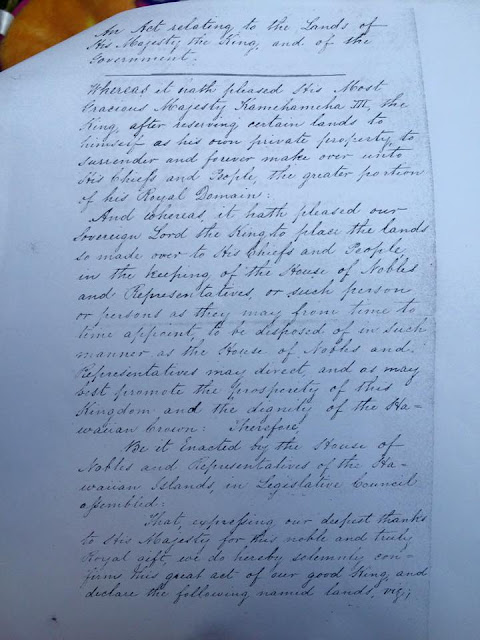 An Act relating to the Lands of
His Majesty the King, and of the
Government.
Whereas, it hath pleased His Most
Gracious Majesty Kamehameha III, the
King, after reserving certain lands to
himself as his own private property, to
surrender and forever make over unto
His Chiefs and People, the greater portion
of his Royal Domain:
And whereas, it hath pleased our
Sovereign Lord the King, to place the lands
so made over to His Chiefs and People,
in the keeping of the House of Nobles
and Representatives, or such person
or persons as they may from time to
time appoint, to be disposed of in such
manner as the House of Nobles and
Representatives may direct, and as may
best promote the prosperity of this
Kingdom and the dignity of the Ha-
waiian Crown: Therefore,
Be it Enacted by the House of
Nobles and Representatives of the Ha-
waiian Islands, in Legislative Council
assembled:
That, expressing our deepest thanks
to His Majesty for this noble and truly
Royal gift, we do hereby solemnly con-
firm this great act of our good King, and
declare the following named lands, viz;